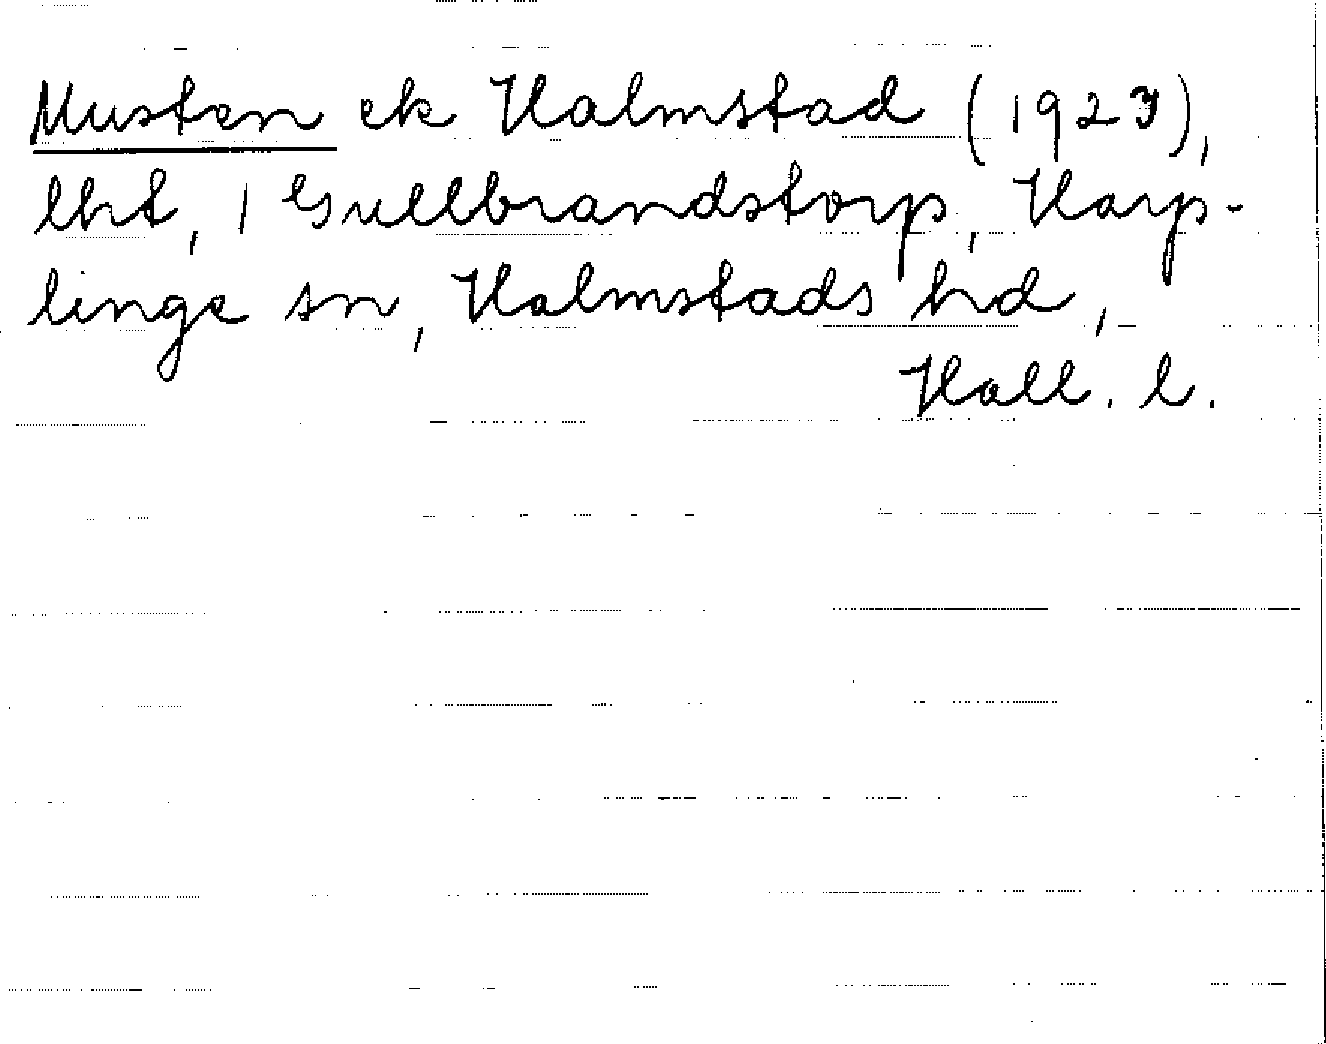 Musten ek Halmstad (1923),
lht, 1 Gullbrandstorp, Harp-
linge sn, Halmstads hd,
Hall. l.